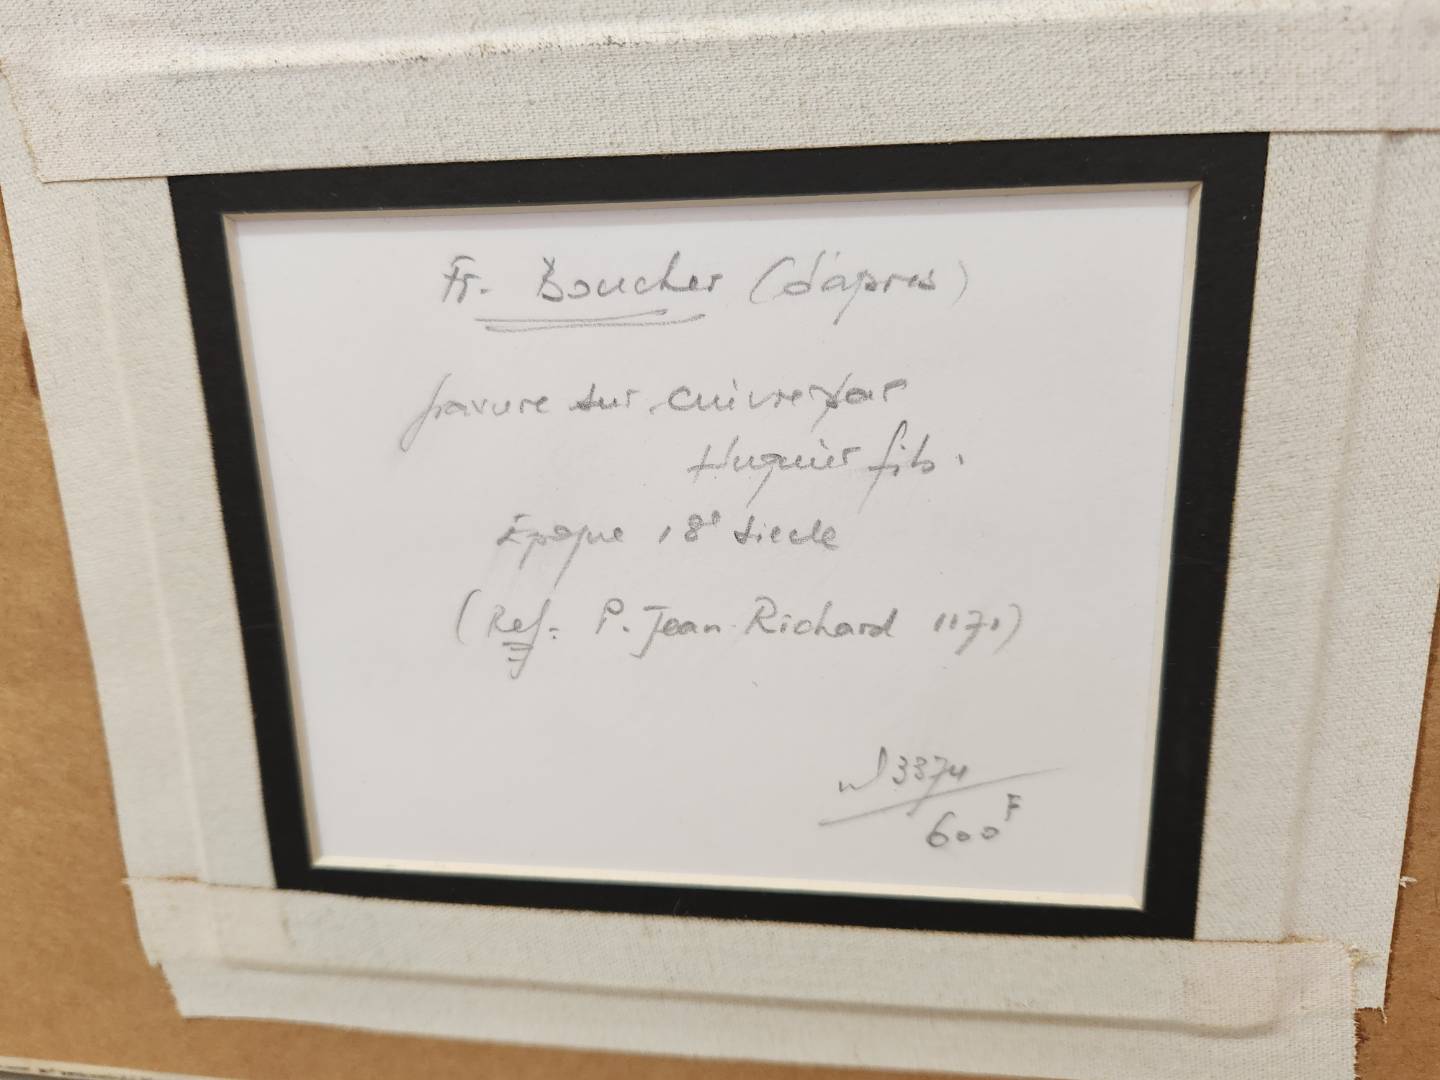 Fr. Boucher (d'après)
gravure sur cuivre par
Huquier fils.
Epoque 18e siecle
(Ref. P. Jean Richard 1171)
3374
600F